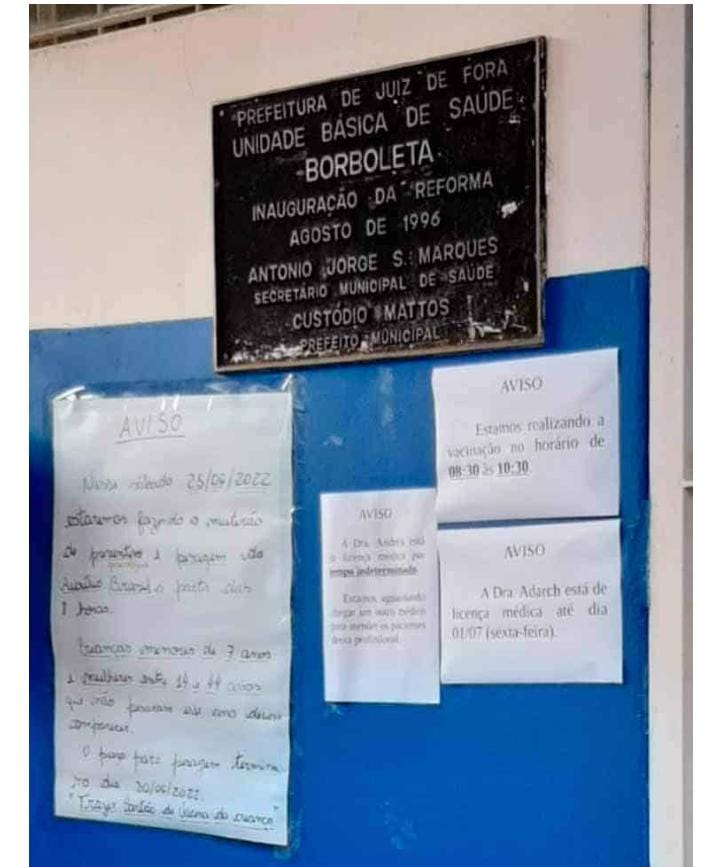 PREFEITURA DE JUIZ DE FORA
UNIDADE BÁSICA DE SAÚDE
BORBOLETA
INAUGURAÇÃO DA REFORMA
AGOSTO DE 1996
ANTONIO JORGE S. MARQUES
SECRETÁRIO MUNICIPAL DE SAÚDE
CUSTÓDIO MATTOS
PREFEITO MUNICIPAL
AVISO
Nesse sábado 25/06/2022
estaremos fazendo o mutirão
de preventivo e pesagem do
Auxílio Brasil a partir das
8 horas.
Crianças menores de 7 anos
e mulheres entre 14 e 44 anos
que não pesaram esse ano devem
comparecer.
O prazo para pesagem termina
no dia 30/06/2022.
"Trazer Cartão de Vacina da criança"
AVISO
A Dra. está
licença médica por
tempo indeterminado.
Estamos aguardando
chegar um outro médico
para atender os pacientes
dessa profissional.
AVISO
Estamos realizando a
vacinação no horário de
08:30 às 10:30.
AVISO
A Dra. Adarch está de
licença médica até dia
01/07 (sexta-feira).